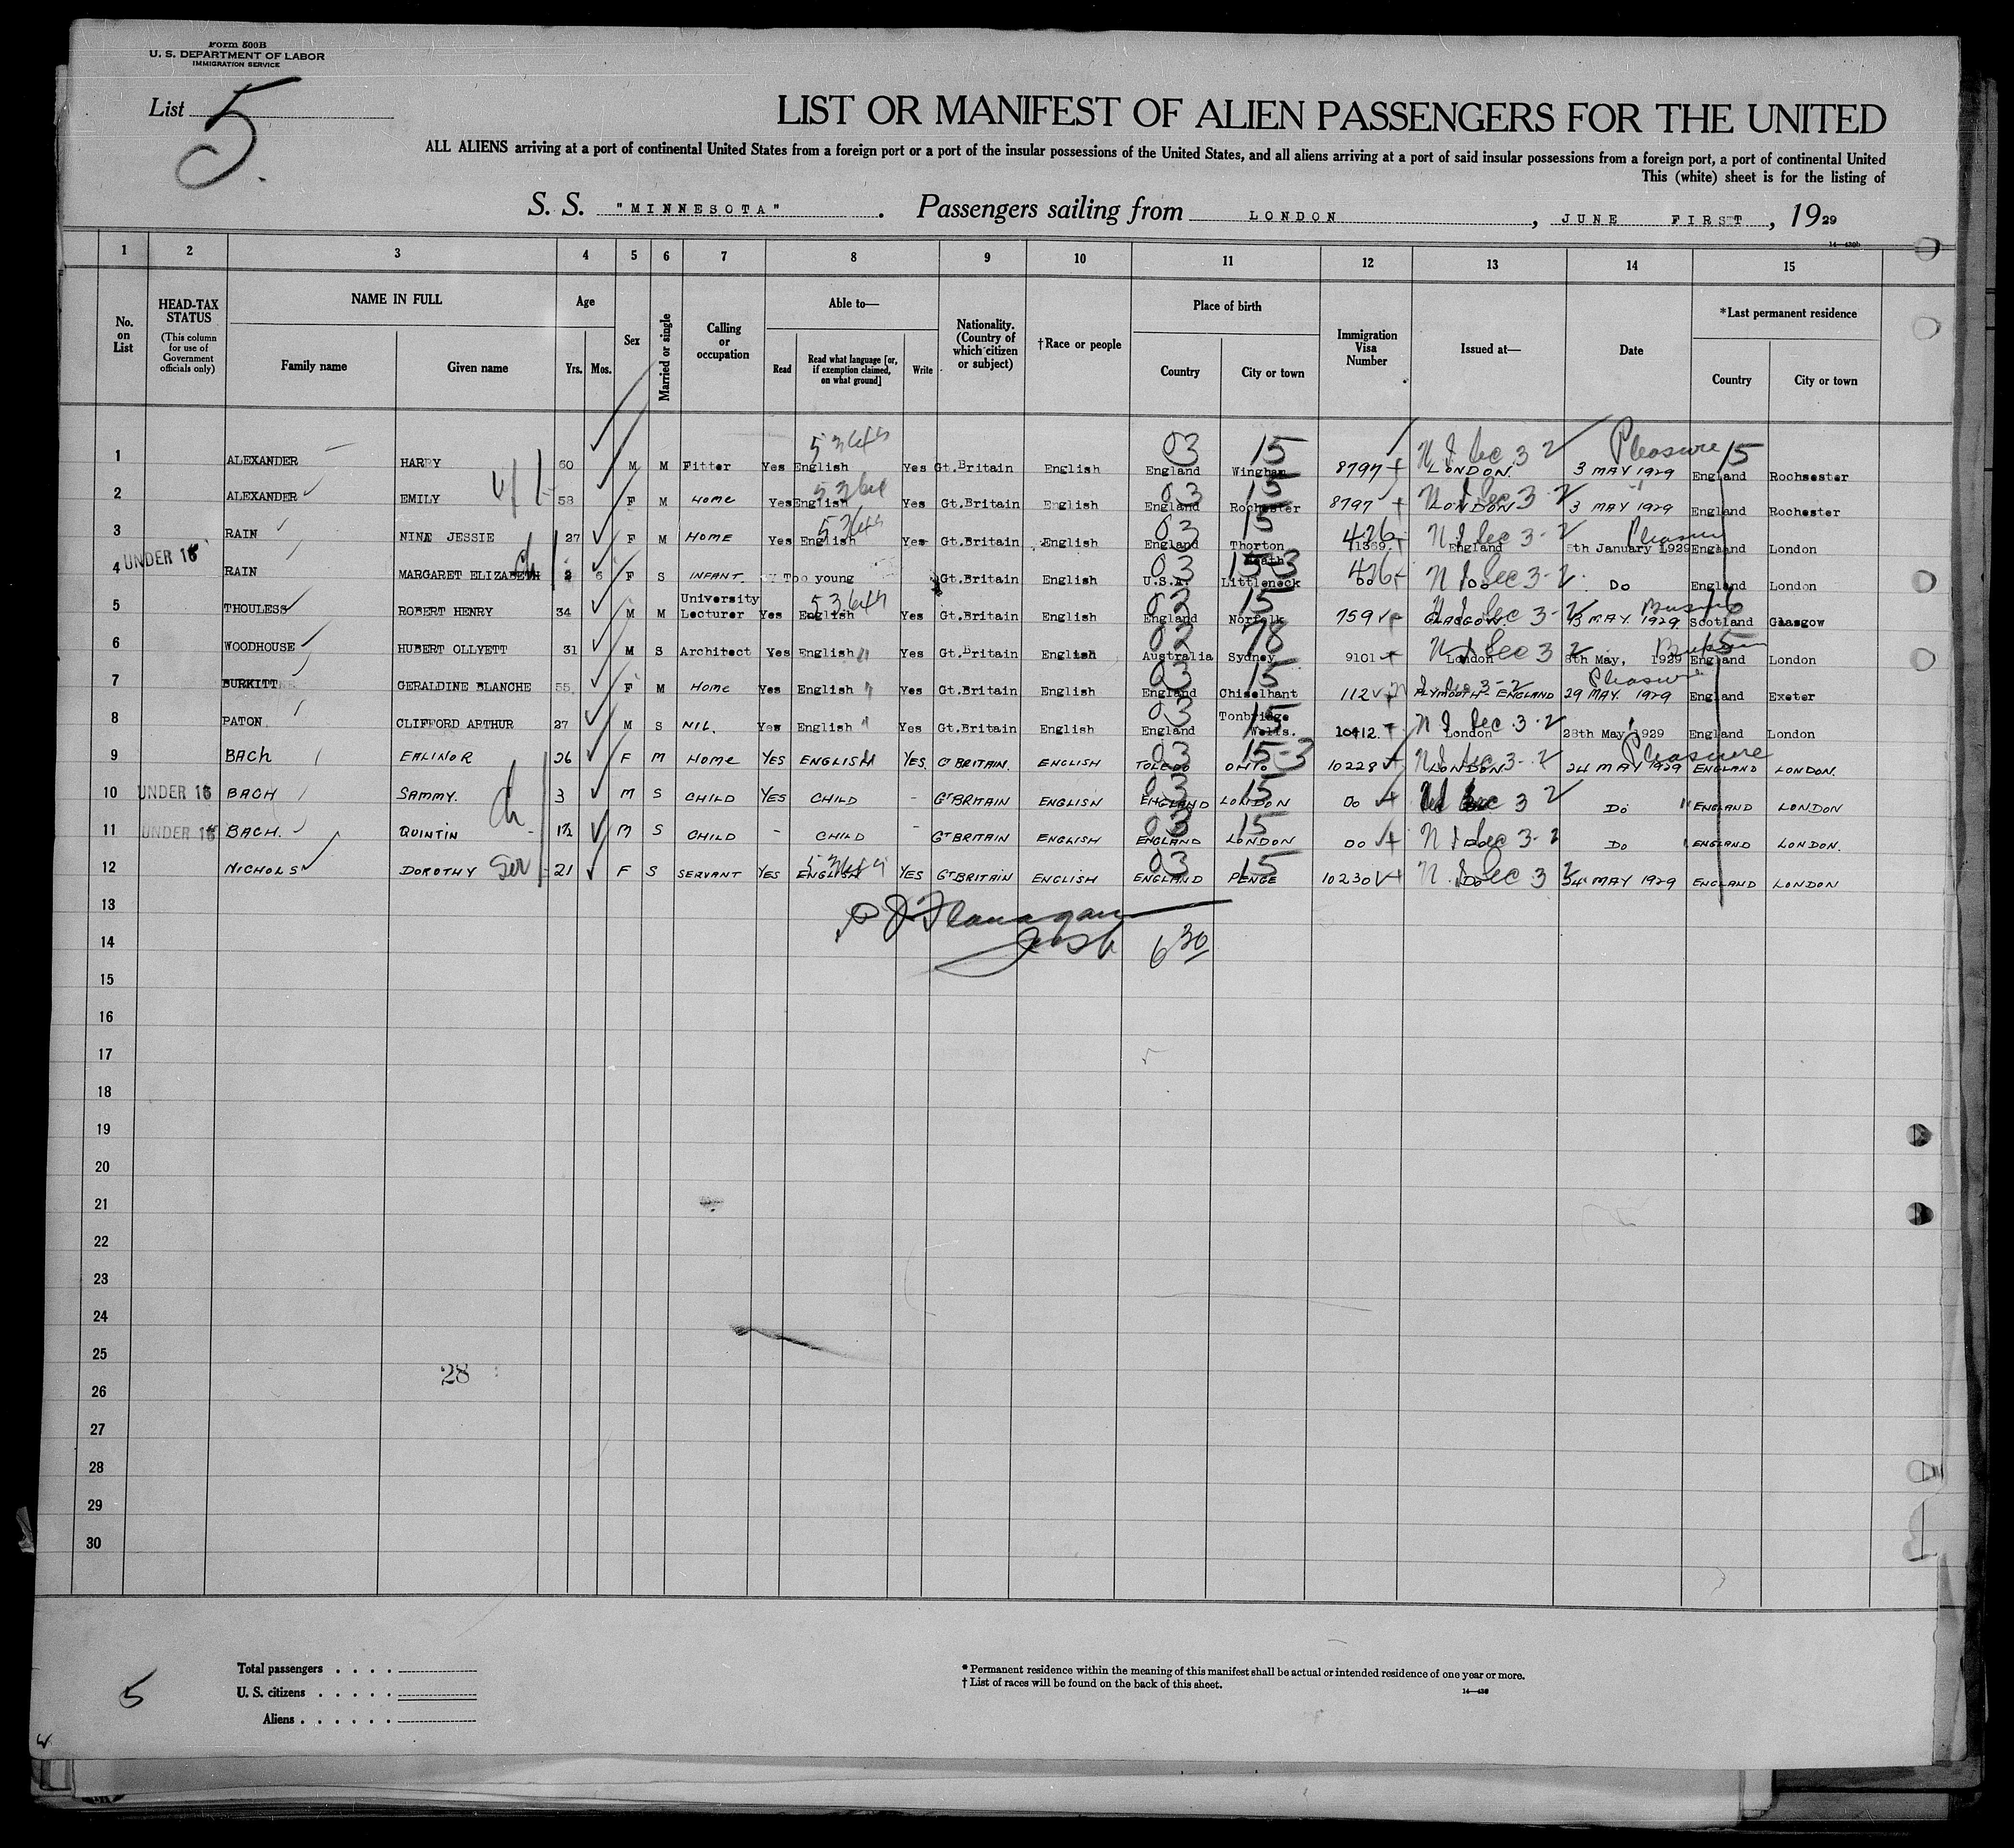 Form 500B
U. S. DEPARTMENT OF LABOR
IMMIGRATION SERVICE
List 5.
LIST OR MANIFEST OF ALIEN PASSENGERS FOR THE UNITED
ALL ALIENS arriving at a port of continental United States from a foreign port or a port of the insular possessions of the United States, and all aliens arriving at a port of said insular possessions from a foreign port, a port of continental United
This (white) sheet is for the listing of
S. S. "MINNESOTA". Passengers sailing from LONDON, JUNE FIRST, 1929
1 2 3 4 5 6 7 8 9 10 11 12 13 14 15
No. on List
HEAD-TAX STATUS
(This column for use of Government officials only)
NAME IN FULL
Family name
Given name
Age
Yrs. Mos.
Sex
Married or single
Calling or occupation
Able to—
Read
Read what language [or, if exemption claimed, on what ground]
Write
Nationality. (Country of which citizen or subject)
†Race or people
Place of birth
Country
City or town
Immigration Visa Number
Issued at—
Date
*Last permanent residence
Country
City or town
1 ALEXANDER HARRY 60 M M Fitter Yes English Yes Gt.Britain English England Wingham 8797 LONDON. 3 MAY 1929 England Rochsester
2 ALEXANDER EMILY 58 F M HOME Yes English Yes Gt.Britain English England Rochester 8797 LONDON 3 MAY 1929 England Rochester
3 RAIN NINA JESSIE 27 F M HOME Yes English Yes Gt.Britain English England Thorton Heath 426 England 8th January 1929 England London
4 UNDER 16 RAIN MARGARET ELIZABETH 2 6 F S INFANT Too young Gt.Britain English U.S.A. Littleneck 426 Do Do England London
5 THOULESS ROBERT HENRY 34 M M University Lecturer Yes English Yes Gt.Britain English England Norfolk 759 GLASGOW. MAY. 1929 Scotland Glasgow
6 WOODHOUSE HUBERT OLLYETT 31 M S Architect Yes English Yes Gt.Britain English Australia Sydney 9101 London 8th May, 1929 England London
7 BURKITT GERALDINE BLANCHE 55 F M HOME Yes English Yes Gt.Britain English England Chiselhant 112 PLYMOUTH-ENGLAND 29 MAY. 1929 England Exeter
8 PATON CLIFFORD ARTHUR 27 M S NIL. Yes English Yes Gt.Britain English England Tonbridge Wells. 10412 London 28th May 1929 England London
9 BACH EALINOR 26 F M HOME YES ENGLISH YES. GT BRITAIN. ENGLISH TOLEDO OHIO 10228 LONDON 24 MAY 1929 ENGLAND LONDON.
10 UNDER 16 BACH SAMMY. 3 M S CHILD YES CHILD - GT BRITAIN ENGLISH ENGLAND LONDON DO DO ENGLAND LONDON
11 UNDER 16 BACH. QUINTIN 1½ M S CHILD - CHILD - GT BRITAIN ENGLISH ENGLAND LONDON DO DO DO ENGLAND LONDON.
12 NICHOLS DOROTHY 21 F S SERVANT YES ENGLISH YES GT BRITAIN ENGLISH ENGLAND PENGE 10230 DO 24 MAY 1929 ENGLAND LONDON
13
P J Flanagan
14
Insp 6 30
15
16
17
18
19
20
21
22
23
24
25
28
26
27
28
29
30
Total passengers . . . .
U. S. citizens . . . . .
Aliens . . . . . .
5
* Permanent residence within the meaning of this manifest shall be actual or intended residence of one year or more.
† List of races will be found on the back of this sheet.